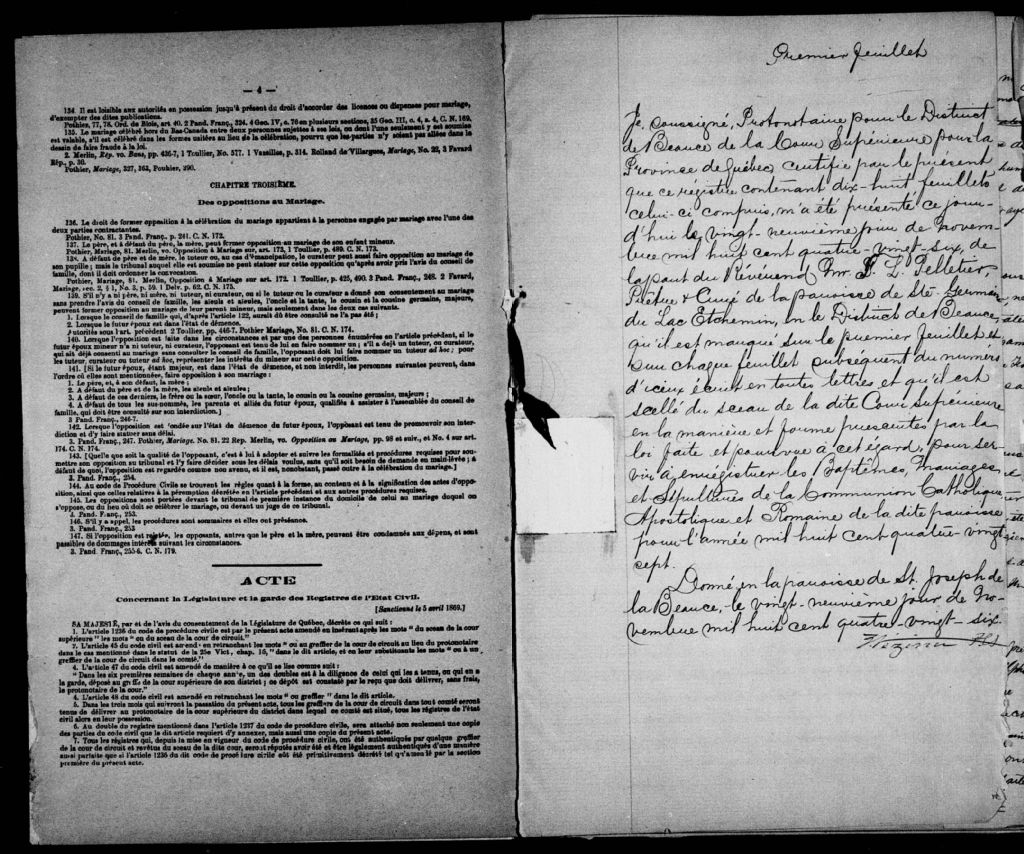 — 4 —
134. Il est loisible aux autorités en possession jusqu'à présent du droit d'accorder des licences ou dispenses pour mariage,
d'exempter des dites publications.
Pothier, 77, 78. Ord. de Blois, art. 40. 2 Pand. Franç., 324. 4 Geo. IV, c. 76 en plusieurs sections, 35 Geo. III, c. 4, s. 4, C. N. 169.
135. Le mariage célébré hors du Bas-Canada entre deux personnes sujettes à ses lois, ou dont l'une seulement y est soumise
est valable, s'il est célébré dans les formes usitées au lieu de la célébration, pourvu que les parties n'y soient pas allées dans le
dessin de faire fraude à la loi.
2. Merlin, Rép. vo. Bans, pp. 436-7, 1 Toullier, No. 577. 1 Vazeilles, p. 314. Rolland de Villargues, Mariage, No. 22, 3 Favard
Rép., p. 30.
Pothier, Mariage, 327, 363, Pothier, 390.
CHAPITRE TROISIÈME.
Des oppositions au Mariage.
136. Le droit de former opposition à la célébration du mariage appartient à la personne engagée par mariage avec l'une des
deux parties contractantes.
Pothier, No. 81. 3 Pand. Franç., p. 241. C. N. 172.
137. Le père, et à défaut du père, la mère, peut former opposition au mariage de son enfant mineur.
Pothier, Mariage, 81. Merlin, vo. Opposition à Mariage sur art. 173, 1 Toullier, p. 489. C. N. 173.
138. A défaut de père et de mère, le tuteur ou, au cas d'émancipation, le curateur peut aussi faire opposition au mariage de
son pupille; mais le tribunal auquel elle est soumise ne peut statuer sur cette opposition qu'après avoir pris l'avis du conseil de
famille, dont il doit ordonner la convocation.
Pothier, Mariage, 81. Merlin, Opposition à Mariage sur art. 172. 1 Toullier, p. 425, 490. 3 Pand. Franç., 248. 2 Favard,
Mariage, sec. 2, § 1, No. 3, p. 59. 1 Delv. p. 62. C. N. 175.
139. S'il n'y a ni père, ni mère, ni tuteur, ni curateur, ou si le tuteur ou le curateur a donné son consentement au mariage
sans prendre l'avis du conseil de famille, les aïeuls et aïeules, l'oncle et la tante, le cousin et la cousine germains, majeurs,
peuvent former opposition au mariage de leur parent mineur, mais seulement dans les deux cas suivants.
1. Lorsque le conseil de famille qui, d'après l'article 122, aurait dû être consulté ne l'a pas été;
2. Lorsque le futur époux est dans l'état de démence.
Autorités sous l'art. précédent 2 Toullier, pp. 446-7. Pothier Mariage, No. 81. C. N. 174.
140. Lorsque l'opposition est faite dans les circonstances et par une des personnes énumérées en l'article précédent, si le
futur époux mineur n'a ni tuteur, ni curateur, l'opposant est tenu de lui en faire nommer un; s'il a déjà un tuteur, ou curateur,
qui ait déjà consenti au mariage sans consulter le conseil de famille, l'opposant doit lui faire nommer un tuteur ad hoc; pour
les tuteur, curateur ou tuteur ad hoc, représenter les intérêts du mineur sur cette opposition.
141. [Si le futur époux, étant majeur, est dans l'état de démence, et non interdit, les personnes suivantes peuvent, dans
l'ordre où elles sont mentionnées, faire opposition à son mariage:
1. Le père, et, à son défaut, la mère;
2. A défaut du père et de la mère, les aïeuls et aïeules;
3. A défaut de ces derniers, le frère ou la sœur, l'oncle ou la tante, le cousin ou la cousine germains, majeurs;
4. A défaut de tous les sus-nommés, les parents et alliés du futur époux, qualifiés à assister à l'assemblée du conseil de
famille, qui doit être consulté sur son interdiction.]
3 Pand Franç., 246-7.
142. Lorsque l'opposition est fondée sur l'état de démence du futur époux, l'opposant est tenu de promouvoir son inter-
diction et d'y faire statuer sans délai.
3. Pand. Franç., 247. Pothier, Mariage. No. 81. 22 Rep. Merlin, vo. Opposition au Mariage, pp. 98 et suiv., et No. 4 sur art.
174. C. N. 174.
143. [Quelle que soit la qualité de l'opposant, c'est à lui à adopter et suivre les formalités et procédures requises pour sou-
mettre son opposition au tribunal et l'y faire décider sous les délais voulus, sans qu'il soit besoin de demande en main-levée; à
défaut de quoi, l'opposition est regardée comme non avenu, et il est, nonobstant, passé outre à la célébration du mariage.]
3. Pand. Franç., 254.
144. Au code de Procédure Civile se trouvent les règles quant à la forme, au contenu et à la signification des actes d'oppo-
sition, ainsi que celles relatives à la péremption décrétée en l'article précédent et aux autres procédures requises.
145. Les oppositions sont portées devant le tribunal de première instance du domicile de celui au mariage duquel on
s'oppose, ou du lieu où doit se célébrer le mariage, ou devant un juge de ce tribunal.
3. Pand. Franç., 253.
146. S'il y a appel, les procédures sont sommaires et elles ont préséance.
3. Pand. Franç., 253
147. Si l'opposition est rejetée, les opposants, autres que le père et la mère, peuvent être condamnés aux dépens, et sont
passibles de dommages intérêts suivant les circonstances.
3. Pand. Franç., 255-6. C. N. 179.
ACTE
Concernant la Législature et la garde des Registres de l'Etat Civil.
[Sanctionné le 5 avril 1869.]
SA MAJESTÉ, par et de l'avis du consentement de la Législature de Québec, décrète ce qui suit:
1. L'article 1236 du code de procédure civile est par le présent acte amendé en insérant après les mots "du sceau de la cour
supérieure" les mots "ou du sceau de la cour de circuit."
2. L'article 45 du code civil est amendé en retranchant les mots "ou au greffier de la cour de circuit au lieu du protonotaire
dans le cas mentionné dans le statut de la 25e Vict, chap. 16," dans le dit article, et en leur substituant les mots "ou à un
greffier de la cour de circuit dans le comté."
3. L'article 47 du code civil est amendé de manière à ce qu'il se lise comme suit:
"Dans les six premières semaines de chaque année, un des doubles est à la diligence de celui qui les a tenus, ou qui en a
la garde, déposé au greffe de la cour supérieure de son district; ce dépôt est constaté par le reçu que doit délivrer, sans frais,
le protonotaire de la cour."
4. L'article 48 du code civil est amendé en retranchant les mots "ou greffier" dans le dit article.
5. Dans les trois mois qui suivront la passation du présent acte, tous les greffiers de la cour de circuit dans tout comté seront
tenus de délivrer au protonotaire de la cour supérieure du district dans lequel ce comté est situé, tous les registres de l'état
civil alors en leur possession.
6. Au double du registre mentionné dans l'article 1237 du code de procédure civile, sera attaché non seulement une copie
des parties du code civil que le dit article requiert d'y annexer, mais aussi une copie du présent acte.
7. Tous les registres qui, depuis la mise en vigueur du code de procédure civile, ont été authentiqués par quelque greffier
de la cour de circuit et revêtus du sceau de la dite cour, seront réputés avoir été et être légalement authentiqués d'une manière
aussi parfaite que si l'article 1236 du dit code de procédure civile eût été primitivement décrété tel qu'amendé par la section
première du présent acte.
Premier feuillet
Je, soussigné, Protonotaire pour le District
de Beauce de la Cour Supérieure pour la
Province de Québec certifie par le présent
que ce régistre contenant dix-huit feuillets
celui-ci compris, m'a été présenté ce jour-
d'hui le vingt-neuvième jour de Novem-
bre mil huit cent quatre-vingt-six, de
la part du Révérend Mr. Pelletier,
Prêtre & Curé de la paroisse de Ste. Germaine
du Lac Etchemin, en le District de Beauce,
qu'il est marqué sur le premier feuillet et
sur chaque feuillet subséquent du numéro
d'iceux écrit en toutes lettres et qu'il est
scellé du sceau de la dite Cour Supérieure
en la manière et forme prescrites par la
loi faite et pourvue à cet égard, pour ser-
vir à enrégistrer les Baptêmes, Mariages
et Sépultures de la Communion Catholique
Apostolique et Romaine de la dite paroisse
pour l'année mil huit cent quatre-vingt
sept.
Donné en la paroisse de St. Joseph de
la Beauce, le vingt-neuvième jour de No-
vembre mil huit cent quatre-vingt-six.